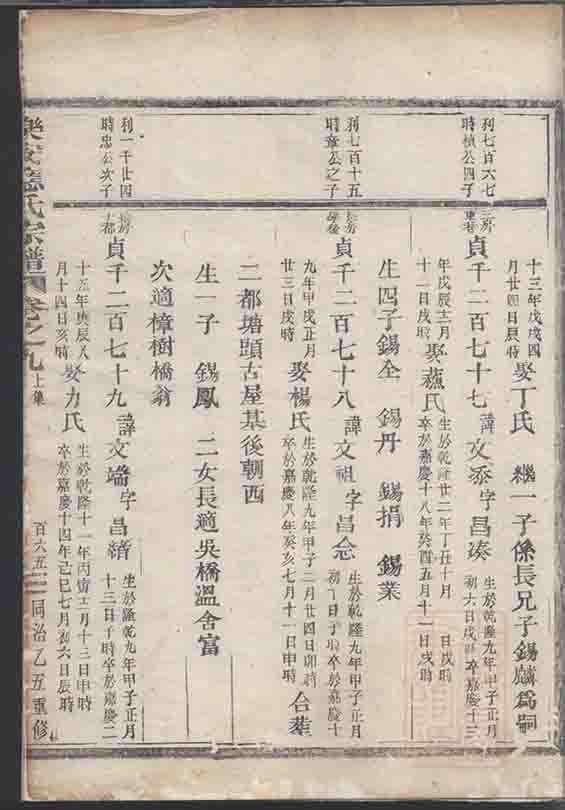 十三年戊戌四
月廿四日辰時 娶丁氏 繼一子係長兄子錫麟為嗣
利七百六七
時楨公四子
貞千二百七十七 諱文 字昌湊 生於乾隆九年甲子正月
初六日戌時卒嘉慶十三
年戊辰十二月
十一日戌時 娶蕭氏 生於乾隆廿二年丁丑十月 日戌時
卒於嘉慶十八年癸酉五月十一日戌時
生四子錫全 錫丹 錫捐 錫業
利七百十五
時 公之子
貞千二百七十八 諱文祖 字昌念 生於乾隆九年甲子正月
初 日子時卒於嘉慶十
九年甲戌正月
廿三日戌時 娶楊氏 生於乾隆九年甲子二月廿四日卯時
卒於嘉慶八年癸亥七月十一日申時 合葬
二都塘頭古屋基後朝西
生一子 錫鳳 二女長適吳橋溫舍富
次適樟樹橋翁
利一千廿四
時忠公次子
貞千二百七十九 諱文端 字昌縉 生於乾隆九年甲子正月
十三日子時卒於嘉慶二
十五年庚辰八
月十四日亥時 娶力氏 生於乾隆十一年丙寅十二月十三日申時
卒於嘉慶十四年己巳七月初六日辰時
樂安 氏宗譜 卷之九 上集 百六五 同治乙丑重修